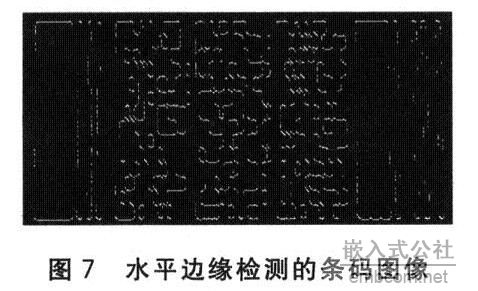 嵌入式公社
图 7 水平边缘检测的条码图像
embcom.net